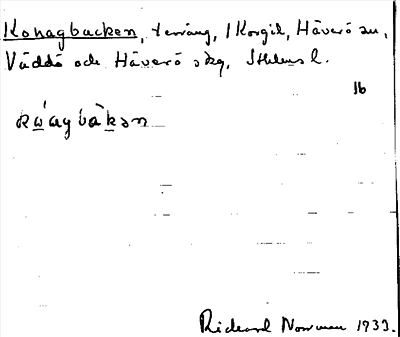 Konagbacken, terräng, 1 Korgil, Häverö sn,
Väddö och Häverö skg, Sthlms l.
16
Rickard Norrman 1933.